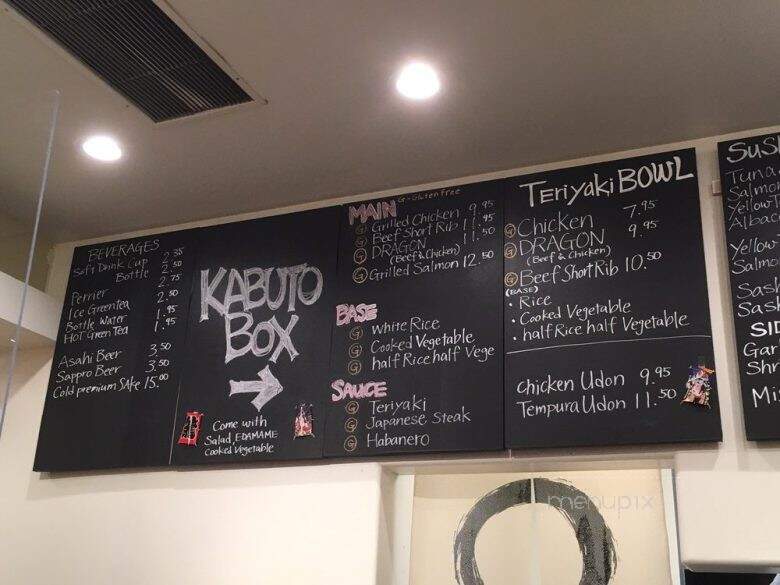 BEVERAGES
Soft Drink Cup 2.35
Bottle 2.50
Perrier 2.75
Ice Greentea 2.50
Bottle Water 1.95
HOT Green Tea 1.95
Asahi Beer 3.50
Sappro Beer 3.50
Cold premium SAKe 15.00
KABUTO
BOX
Come with
Salad, EDAMAME
Cooked Vegetable
MAIN G-Gluten free
G Grilled Chicken 9.95
G Beef Short Rib 11.95
G DRAGON 11.50
(Beef & Chicken)
G Grilled Salmon 12.50
BASE
G White Rice
G Cooked Vegetable
G half Rice half Vege
SAUCE
G Teriyaki
G Japanese Steak
G Habanero
TeriyakiBOWL
G Chicken 7.95
G DRAGON 9.95
(Beef & Chicken)
G Beef Short Rib 10.50
(BASE)
• Rice
• Cooked Vegetable
• half Rice half Vegetable
Chicken Udon 9.95
Tempura Udon 11.50
Tuna
Salmo
Yellow
Salmo
Sash
Sas
Gar
Shr
Mis
menupix